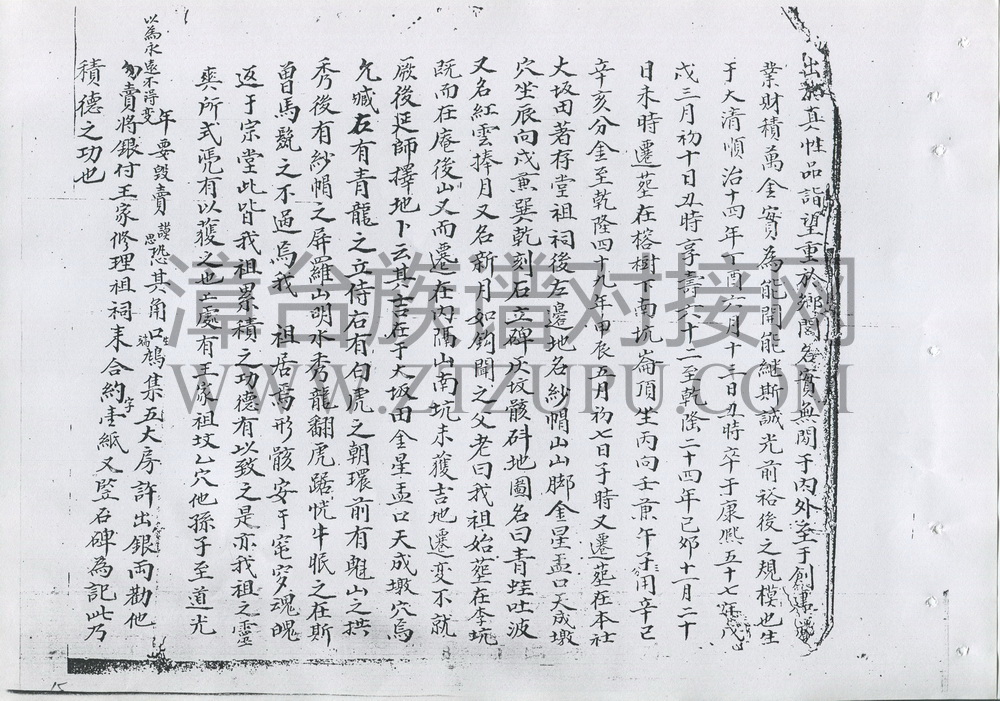 出於真性品詣望重於鄉閭名實無閒于內外至于創建
業財積萬金實為能開能継斯誠光前裕後之規模也生
于大清順治十四年丁酉六月十三日丑時卒于康熙五十七年戊
戌三月初十日丑時享壽六十二至乾隆二十四年己卯十一月二十
日未時遷塟在榕樹下南坑崙頂坐丙向壬兼午子用辛巳
辛亥分金至乾隆四十九年甲辰五月初七日子時又遷塟在本社
大坂田著存堂祖祠後左邊地名紗帽山山脚金星盂口天成墩
穴坐辰向戌兼巽乾刻石立碑灰坟骸斗地圖名曰青蛙吐波
又名紅雲捧月又名新月如鈎聞之父老曰我祖始塟在李坑
既而在庵後山又而遷在內隔山南坑未獲吉地遷变不就
厥後延師擇地卜云其吉在于大坂田金星盂口天成墩穴焉
允臧左有青龍之立侍右有白虎之朝環前有魁山之拱
秀後有紗帽之屏羅山明水秀龍翻虎踞恍牛眠之在斯
曾馬鬣之不過焉我 祖居焉形骸安于窀穸魂魄
返于宗堂此皆我祖累積之功德有以致之是亦我祖之靈
爽所式凭有以獲之也上處有王家祖坟乙穴他孫子至道光
年要毀賣謨思恐其角口生端鳩集五大房許出銀両勸他
勿賣將銀付王家修理祖祠耒合約字壹紙又竪石碑為記此乃
以為永遠不得变
積德之功也
漳台族谱对接网
WWW.ZTZUPU.COM
15